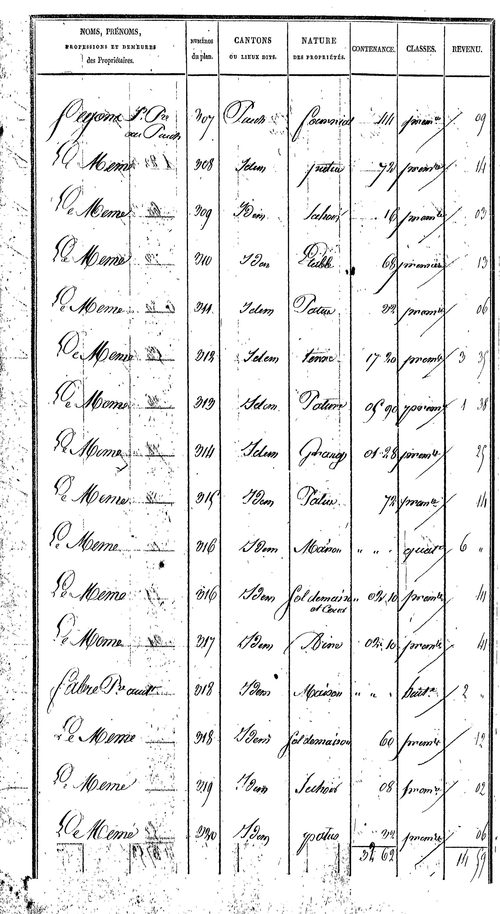 NOMS, PRÉNOMS, PROFESSIONS ET DEMEURES des Propriétaires. NUMÉROS du plan. CANTONS OU LIEUX DITS. NATURE DES PROPRIÉTÉS. CONTENANCE. CLASSES. REVENU.
307 44 09
Le Meme 308 Idem patus 72 premre 14
Le Meme 309 Idem Sechoir 16 premre 03
Le Meme 310 Idem 68 premiere 13
Le Meme 311 Idem Patus 32 premre 06
Le Meme 312 Idem terre 17 20 premre 3 35
Le Meme 313 Idem Pature 05 90 prem 1 38
Le Meme 314 Idem Grange 01 28 premre 25
Le Meme 315 Idem Patus 72 premre 14
Le Meme 316 Idem Maison " " " quatre 6 "
Le Meme 316 Idem Sol de maison et Cour 02 10 premre 41
Le Meme 317 Idem 02 10 premre 41
Fabre Pre 318 Idem Maison " " " huite 2 "
Le Meme 318 Idem Sol de maison 60 premre 12
Le Meme 319 Idem Sechoir 08 premre 02
Le Meme 320 Idem patus 32 premre 06
32 62 14 59